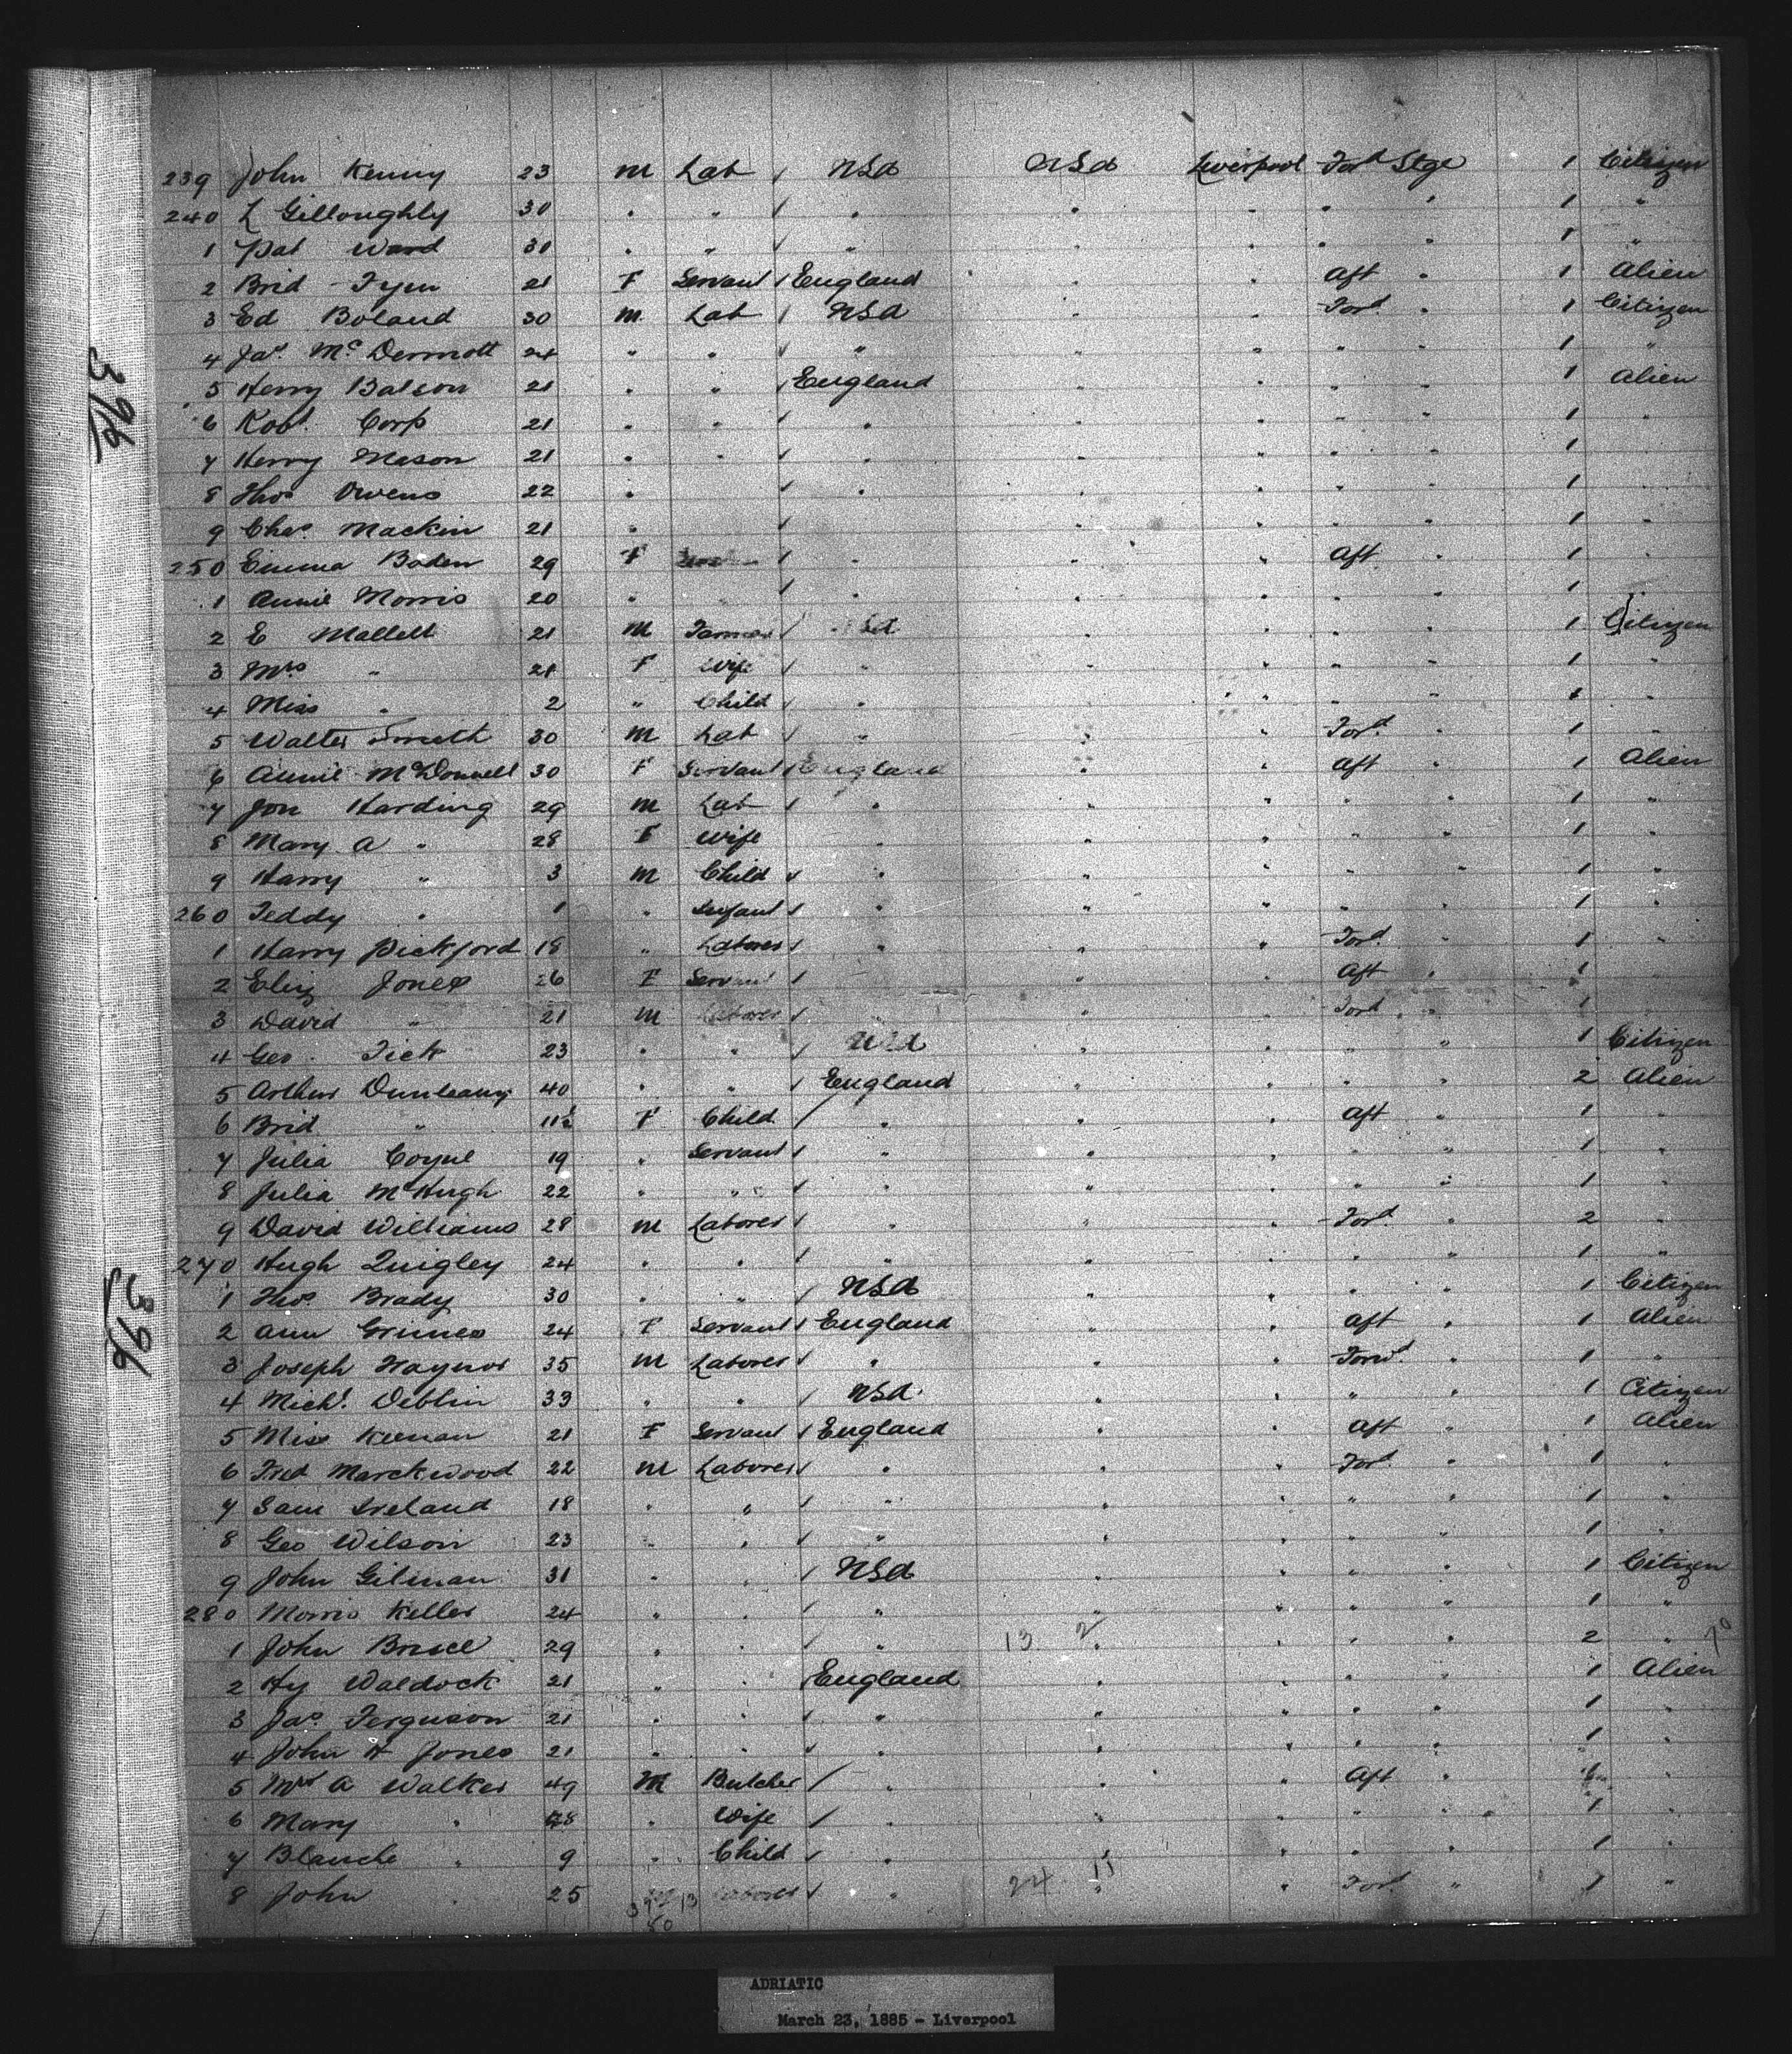 239 John Kenny 23 m Lab / USA USA Liverpool Ford Stge 1 Citizen
240 L Gilloughly 30 " " / " " " " " 1 "
1 Pat Ward 30 " " / " " " " " 1 "
2 Brid Tyen 21 F Servant / England " " Aft " 1 Alien
3 Ed Boland 30 m Lab / USA " " Ford " 1 Citizen
4 Jas. McDermott 24 " " / " " " " " 1 "
5 Henry Balson 21 " " / England " " " " 1 Alien
6 Robt. Corp 21 " " / " " " " " 1 "
7 Henry Mason 21 " " / " " " " " 1 "
8 Thos Owens 22 " / " " " " " 1 "
9 Chas. Mackin 21 " / " " " " 1 "
250 Emma Boden 29 F / " " " Aft " 1 "
1 Annie Morris 20 " / " " " " " 1
2 E Mallett 21 M Farmer / " " " " 1 Citizen
3 Mrs " 21 F Wife / " " " " " 1 "
4 Miss " 2 " Child / " " " " " 1 "
5 Walter Smith 30 m Lab / " " " Ford " 1 "
6 Annie McDonnell 30 F Servant / England " " Aft " 1 Alien
7 Jon Harding 29 m Lab / " " " " " 1 "
8 Mary A " 28 F Wife " " " " " 1 "
9 Harry " 3 m Child / " " " " " 1 "
260 Teddy " 1 " Infant / " " " " " 1 "
1 Harry Pickford 18 " Laborer / " " " Ford " 1 "
2 Eliz Jones 26 F Servant / " " Aft " 1
3 David " 21 m Laborer / " " Ford " 1
4 Geo. Tick 23 " " / " " " " 1 Citizen
5 Arthur Dunleavy 40 " " / England " " " " 2 Alien
6 Brid " 11½ F Child / " " " Aft " 1 "
7 Julia Coyne 19 " Servant / " " " " " 1 "
8 Julia McHugh 22 " " / " " " " " 1 "
9 David Williams 28 m Laborer / " " " Ford " 2 "
270 Hugh Quigley 24 " " / " " " " " 1 "
1 Thos. Brady 30 " " / USA " " " " 1 Citizen
2 Ann Grimes 24 F Servant / England " " Aft " 1 Alien
3 Joseph Traynor 35 m Laborer / " " " Forwd. " 1 "
4 Michl. Deblin 33 " " / USA " " " " 1 Citizen
5 Miss Keenan 21 F Servant / England " " Aft " 1 Alien
6 Fred Marckwood 22 m Laborer / " " " Ford " 1 "
7 Sam Ireland 18 " " / " " " " " 1 "
8 Geo Wilson 23 " " / " " " " " 1 "
9 John Gilman 31 " " / USA " " " " 1 Citizen
280 Morris Keller 24 " " / " " " " " 1 "
1 John Bruce 29 " " / " 13 2 " " " " 2 "
2 Hy Waldock 21 " " England " " " " 1 Alien
3 Jas. Ferguson 21 " " / " " " " " 1 "
4 John H Jones 21 " " / " " " " " 1 "
5 Wm A Walker 49 M Butcher / " " " Aft " "
6 Mary " 48 " Wife / " " " " " 1 "
7 Blanche " 9 " Child / " " " " " 1 "
8 John " 25 Laborer / " 24 11 " " Ford " 1 "
396
396
ADRIATIC
March 23, 1885 - Liverpool